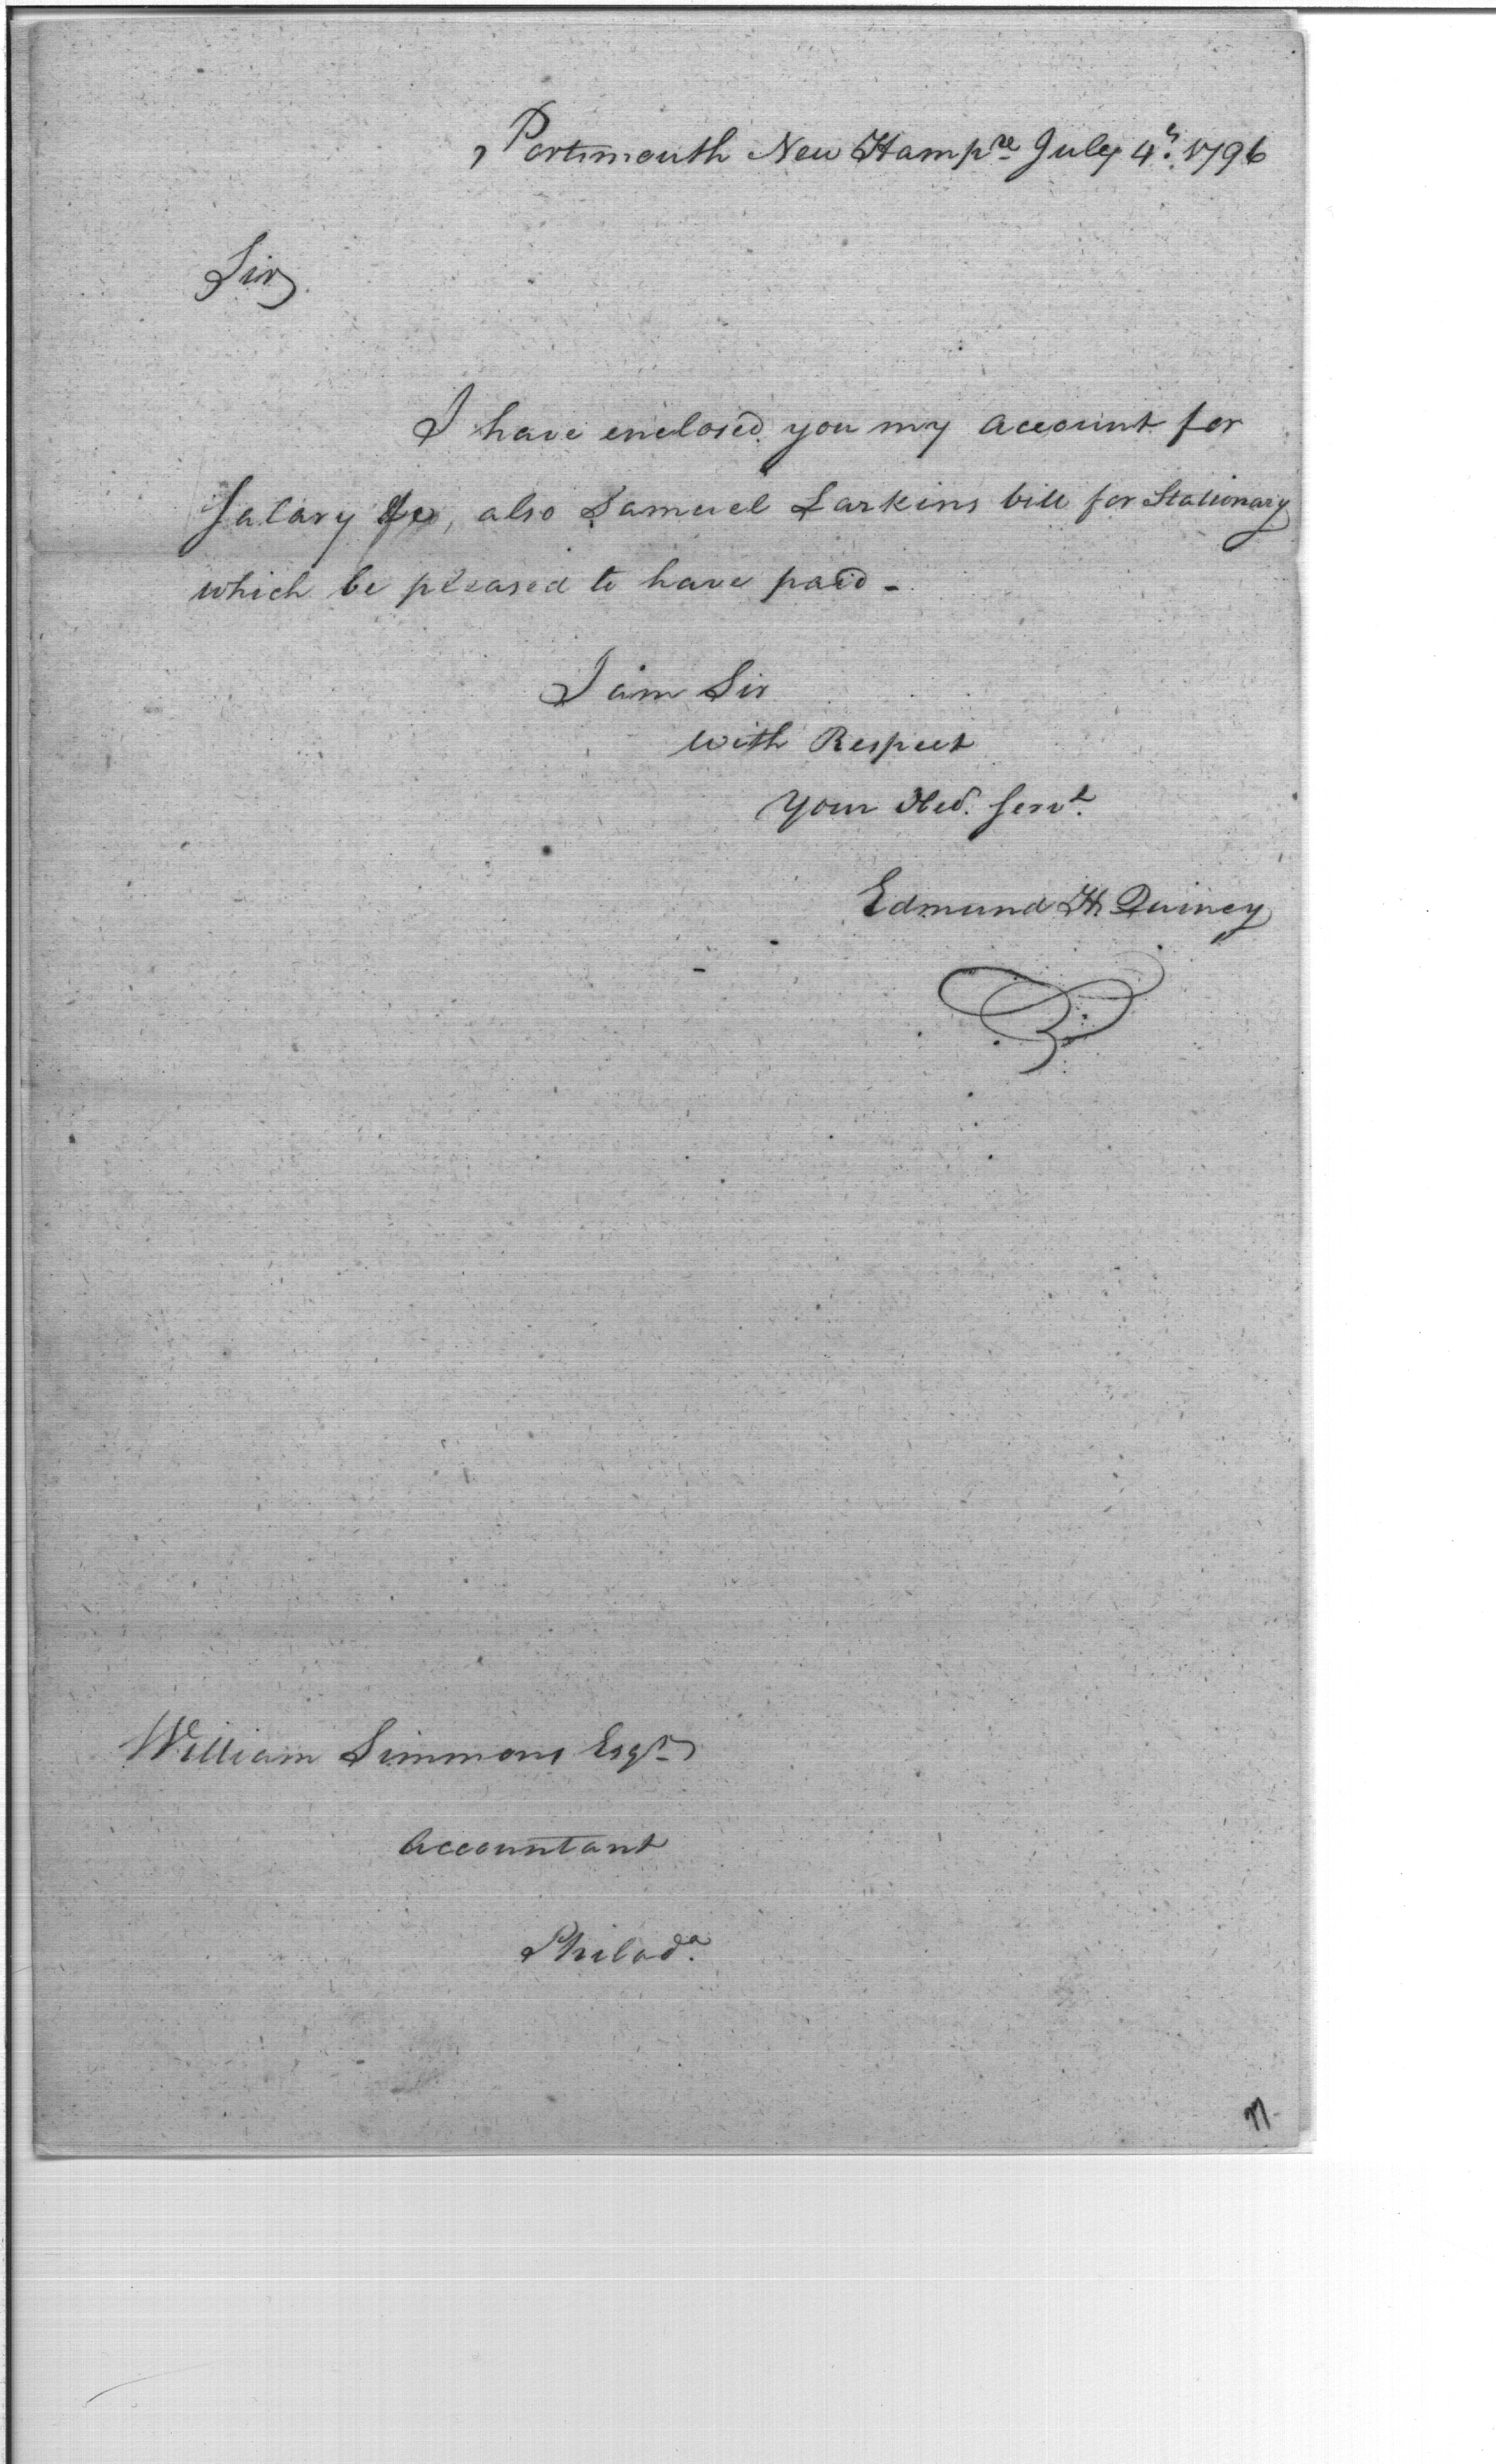 Portsmouth New Hampre July 4th. 1796
Sir
I have enclosed you my account for
Salary &c, also Samuel Larkins bill for Stationary
which be pleased to have paid -
I am Sir
with Respect
Your Obed. Servt.
Edmund H Quincy
William Simmons Esqr
Accountant
Philada.